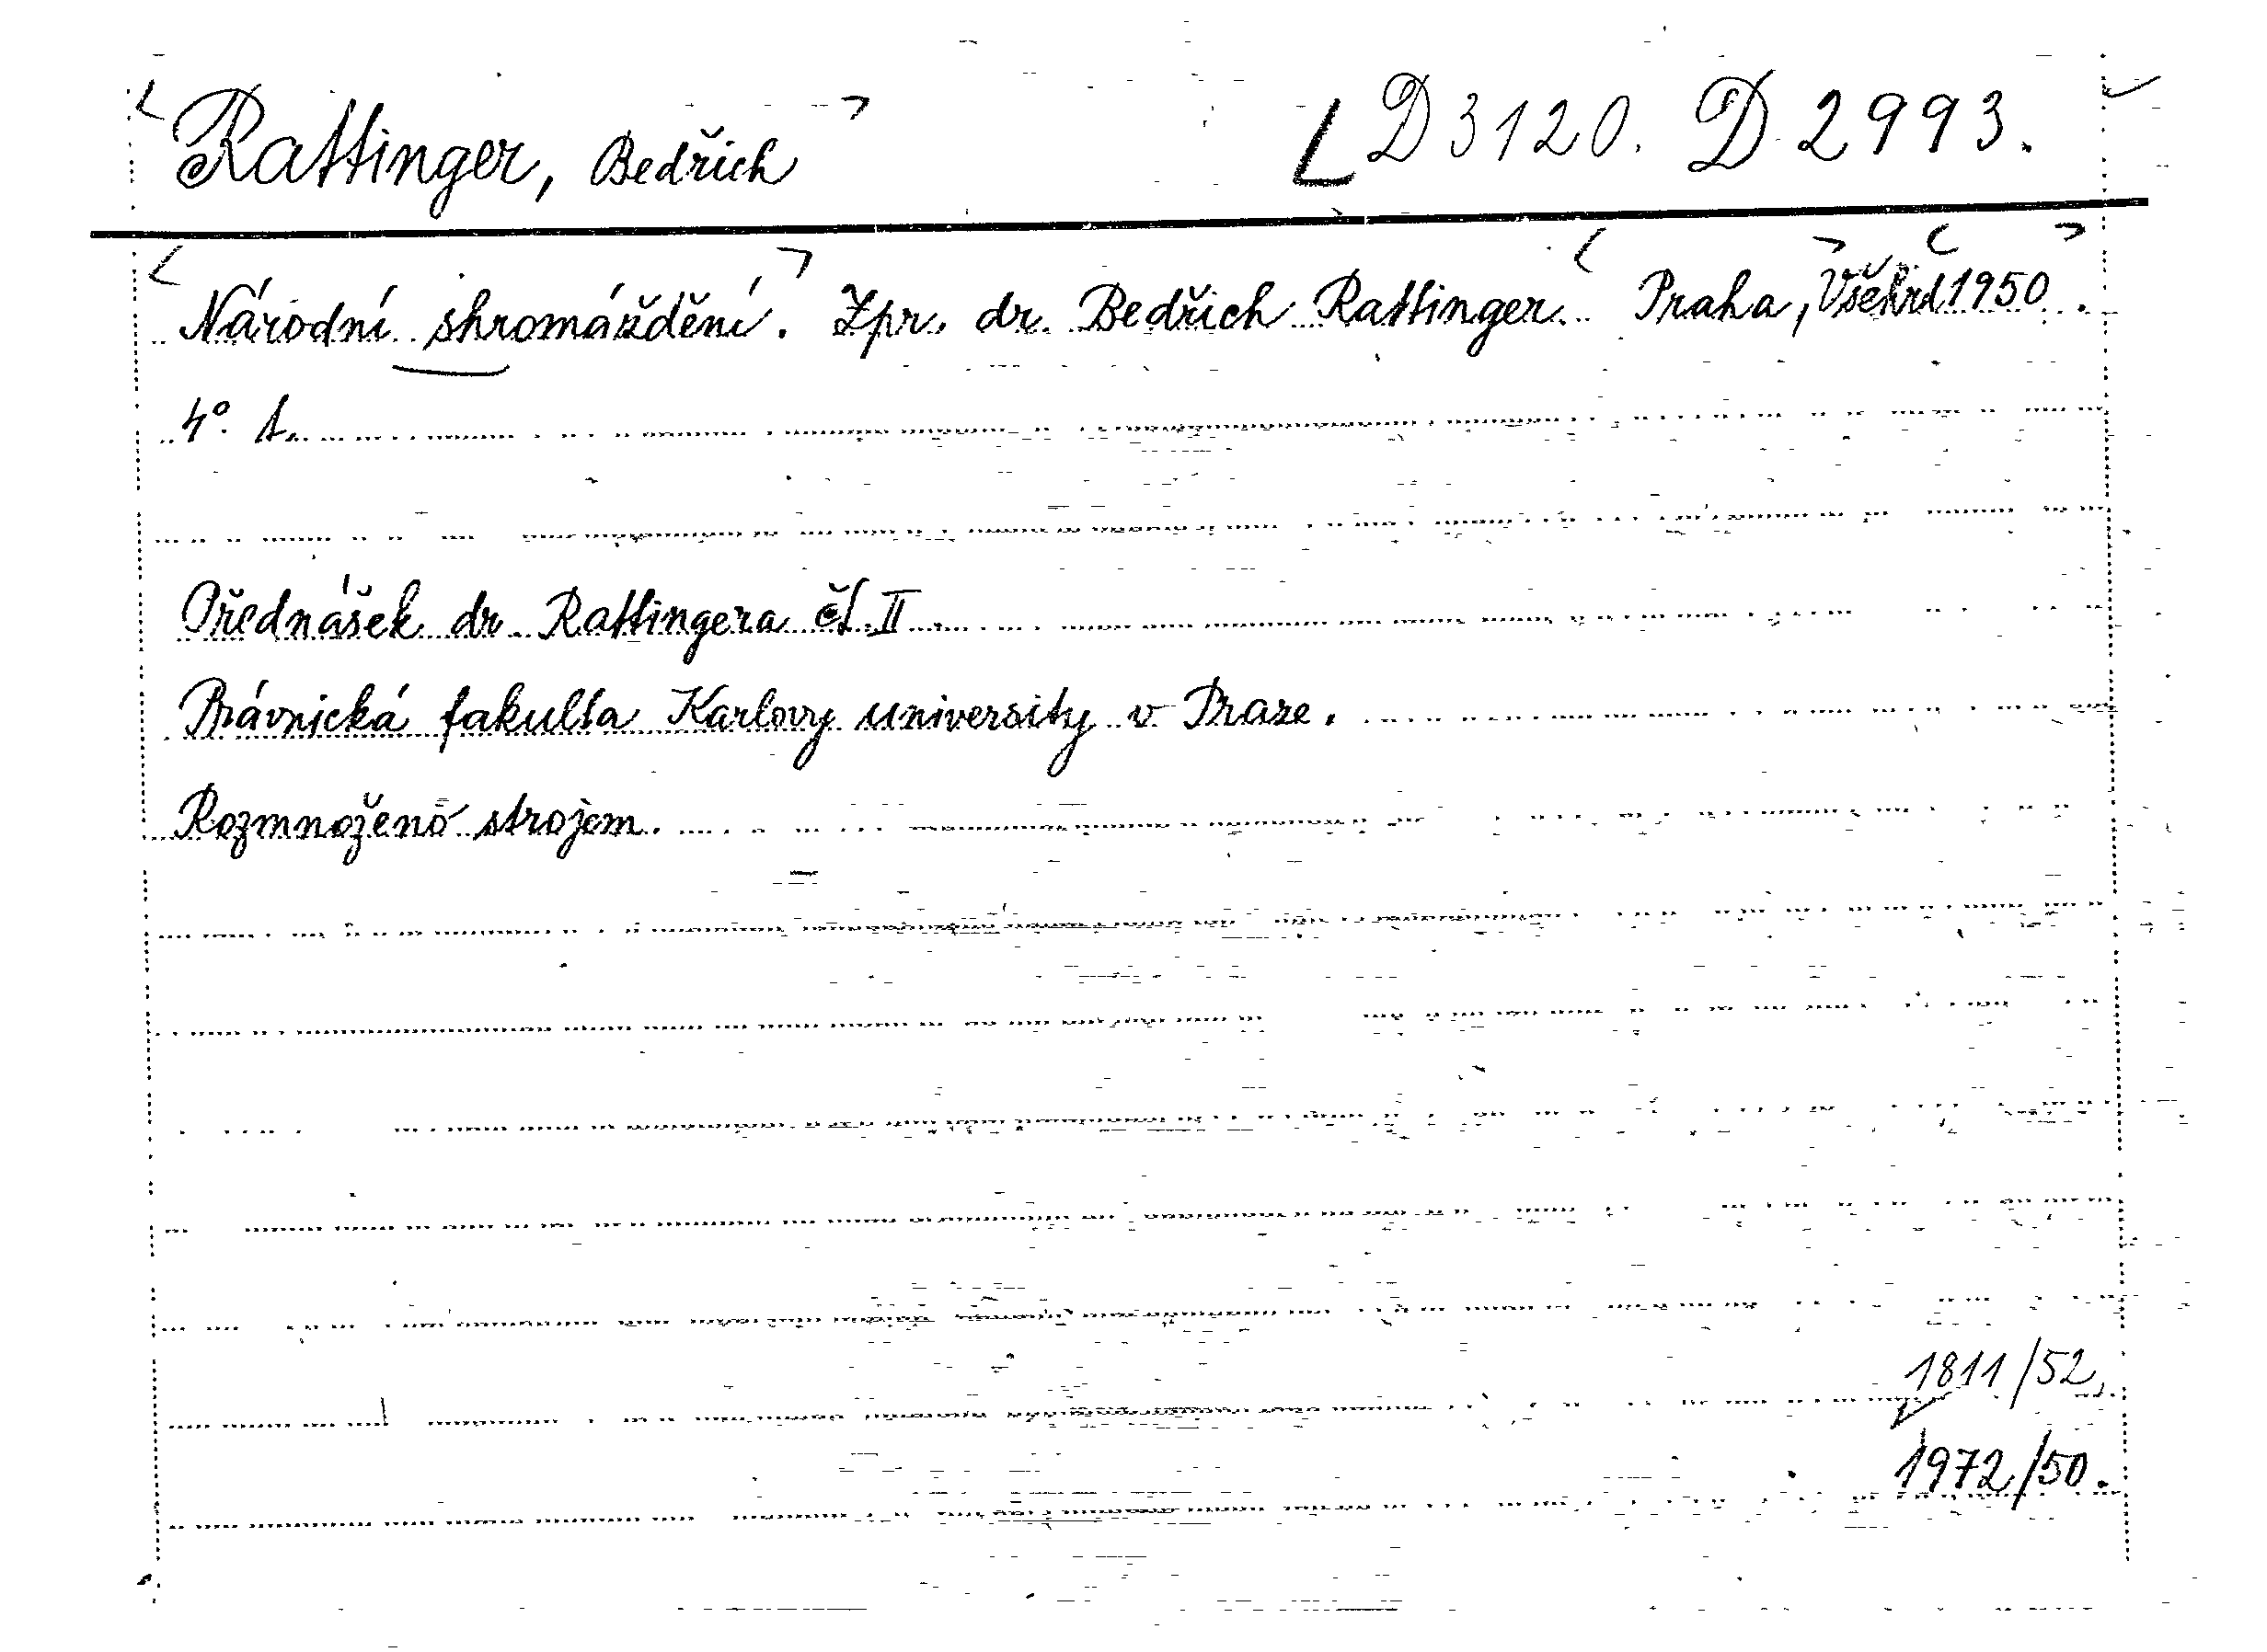 Rattinger, Bedřich D 3120. D 2993.
Národní shromáždění. Zpr. dr. Bedřich Rattinger. Praha, Všehrd 1950.
4°.
Přednášek dr. Rattingera čí. II.
Právnická fakulta Karlovy university v Praze.
Rozmnoženo strojem.
1811/52,
1972/50.